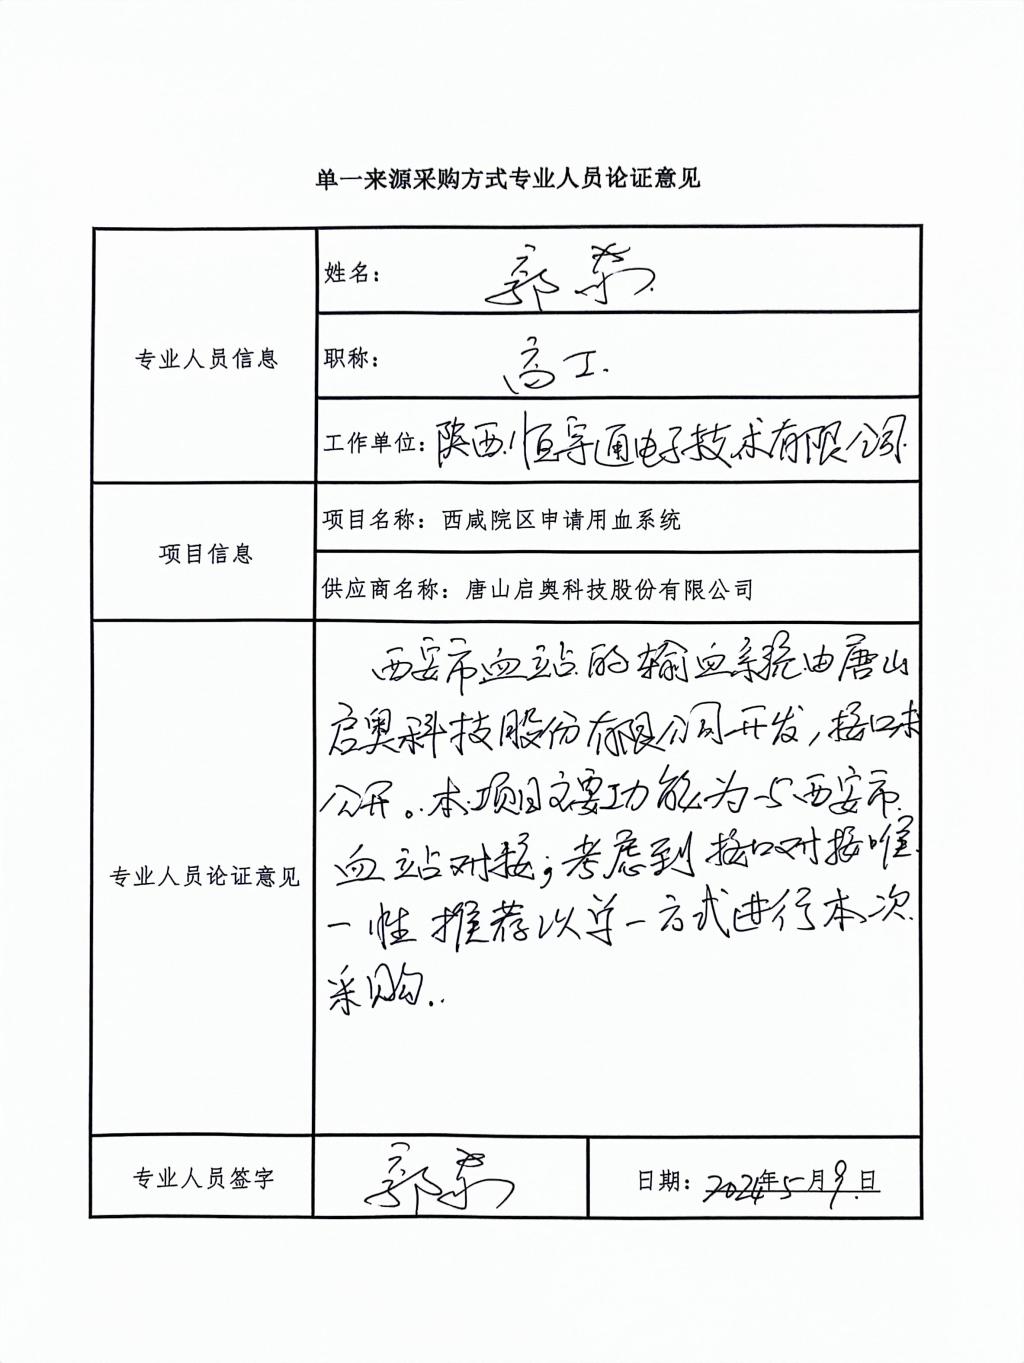 单一来源采购方式专业人员论证意见
专业人员信息
姓名: 郭
职称: 高工.
工作单位: 陕西恒宇通电子技术有限公司
项目信息
项目名称: 西咸院区申请用血系统
供应商名称: 唐山启奥科技股份有限公司
专业人员论证意见
西安市血站的输血系统由唐山
启奥科技股份有限公司开发,接口未
公开。本项目主要功能为与西安市
血站对接;考虑到接口对接唯
一性推荐以单一方式进行本次
采购.
专业人员签字
郭
日期: 2024年5月9日